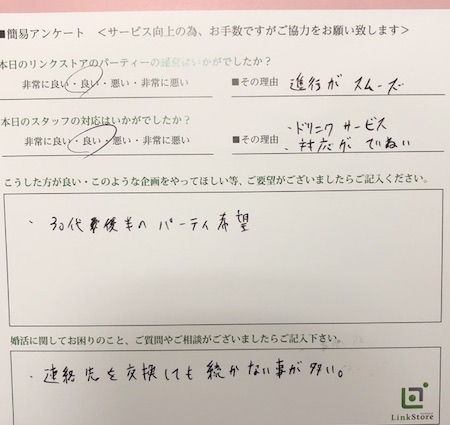 ■簡易アンケート ＜サービス向上の為、お手数ですがご協力をお願い致します＞
本日のリンクストアのパーティーの運営はいかがでしたか？
非常に良い・良い・悪い・非常に悪い ■その理由 進行がスムーズ
本日のスタッフの対応はいかがでしたか？
非常に良い・良い・悪い・非常に悪い ■その理由 ・ドリンクサービス
・対応がていねい
こうした方が良い・このような企画をやってほしい等、ご要望がございましたらご記入ください。
・30代後半のパーティ希望
婚活に関してお困りのこと、ご質問やご相談がございましたらご記入下さい。
・連絡先を交換しても続かない事が多い。
LinkStore